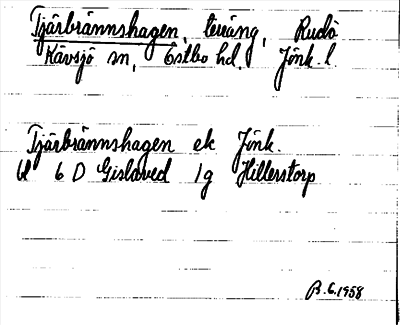 Tjärbrännshagen, terräng, Rudö
Kävsjö sn, Östbo hd. Jönk. l.
Tjärbrännshagen ek Jönk.
Bl 6 D Gislaved 1g Hillerstorp
B.G. 1958